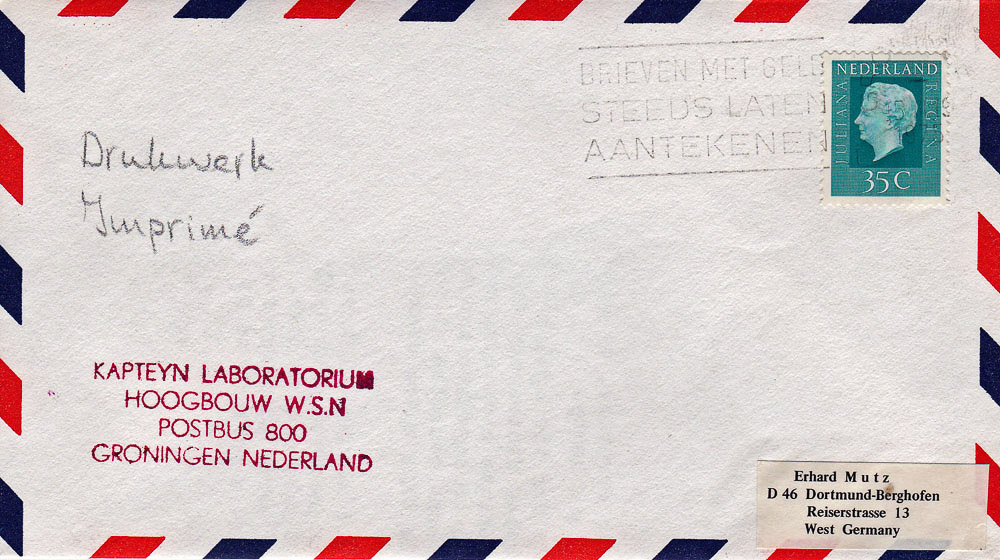 BRIEVEN MET GELD
STEEDS LATEN
AANTEKENEN
NEDERLAND
JULIANA
REGINA
35 C
Drukwerk
Imprimé
KAPTEYN LABORATORIUM
HOOGBOUW W.S.N
POSTBUS 800
GRONINGEN NEDERLAND
Erhard Mutz
D 46 Dortmund-Berghofen
Reiserstrasse 13
West Germany